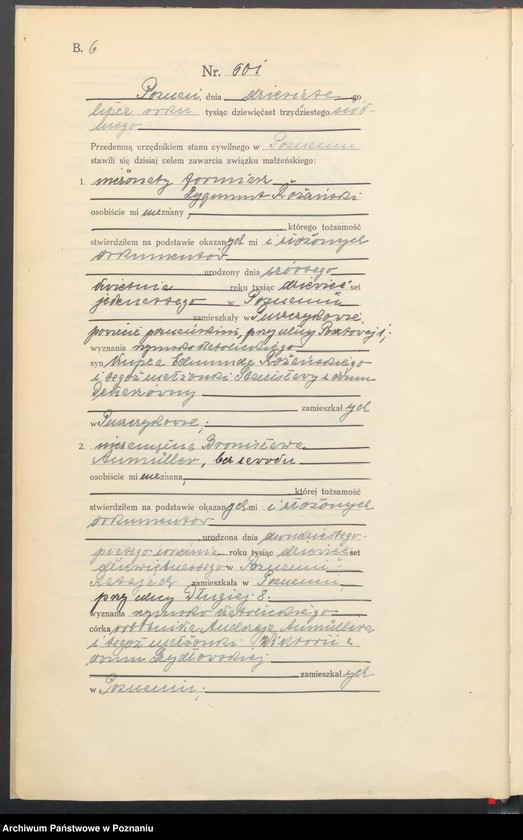 B. 6
Nr. 601
Poznań, dnia dziewiątego
lipca roku tysiąc dziewięćset trzydziestego siód-
mego
Przedemną urzędnikiem stanu cywilnego w Poznaniu
stawili się dzisiaj celem zawarcia związku małżeńskiego:
1. nieżonaty formierz
Zygmunt Różański
osobiście mi nieznany,
którego tożsamość
stwierdziłem na podstawie okazanych mi i złożonych
dokumentów
urodzony dnia szóstego
kwietnia roku tysiąc dziewięćset
jedenastego w Poznaniu
zamieszkały w Puszczykowie,
powiecie poznańskim, przy ulicy
wyznania rzymsko katolickiego
syn kupca Edmunda Różańskiego
i tegoż małżonki Stanisławy z domu
zamieszkałych
w Puszczykowie;
2. niezamężna Bronisława
Aumüller, bez zawodu
osobiście mi nieznana,
której tożsamość
stwierdziłem na podstawie okazanych mi i złożonych
dokumentów
urodzona dnia dwudziestego
piątego września roku tysiąc dziewięćset
w Poznaniu-
Ratajach zamieszkała w Poznaniu,
przy ulicy Długiej 8.
wyznania rzymsko katolickiego
córka robotnika Andrzeja Aumüllera
i tegoż małżonki Wiktorii z
domu Rydlewskiej
zamieszkałych
w Poznaniu;
Archiwum Państwowe w Poznaniu